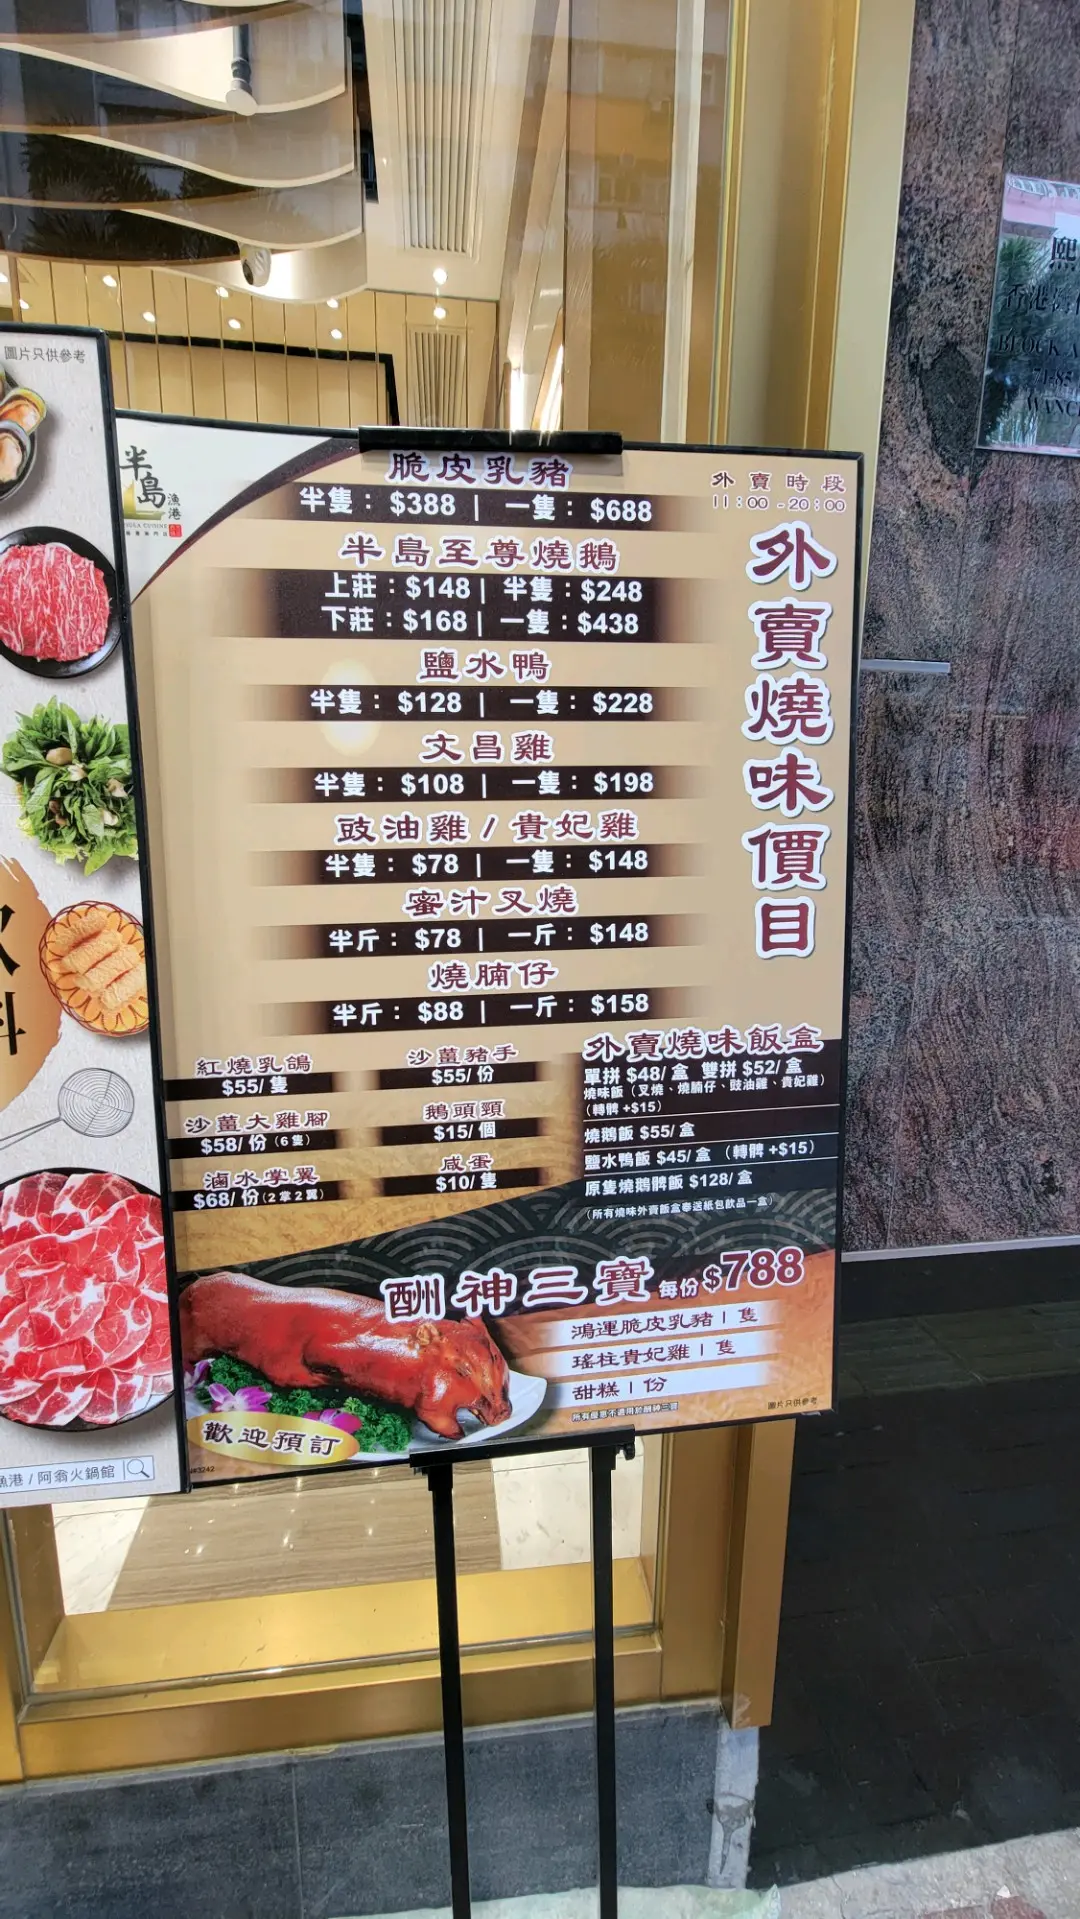 圖片只供參考
料
漁港 / 阿翁火鍋館
半島
漁港
脆皮乳豬
半隻：$388 | 一隻：$688
半島至尊燒鵝
上莊：$148 | 半隻：$248
下莊：$168 | 一隻：$438
鹽水鴨
半隻：$128 | 一隻：$228
文昌雞
半隻：$108 | 一隻：$198
豉油雞 / 貴妃雞
半隻：$78 | 一隻：$148
蜜汁叉燒
半斤：$78 | 一斤：$148
燒腩仔
半斤：$88 | 一斤：$158
外賣時段
11:00 - 20:00
外賣燒味價目
紅燒乳鴿
$55/ 隻
沙薑大雞腳
$58/ 份 (6 隻)
滷水掌翼
$68/ 份 (2 掌 2 翼)
沙薑豬手
$55/ 份
鵝頭頸
$15/ 個
咸蛋
$10/ 隻
外賣燒味飯盒
單拼 $48/ 盒 雙拼 $52/ 盒
燒味飯（叉燒、燒腩仔、豉油雞、貴妃雞）
（轉髀 +$15）
燒鵝飯 $55/ 盒
鹽水鴨飯 $45/ 盒 （轉髀 +$15）
原隻燒鵝髀飯 $128/ 盒
（所有燒味外賣飯盒奉送紙包飲品一盒）
酬神三寶 每份 $788
鴻運脆皮乳豬 | 隻
瑤柱貴妃雞 | 隻
甜糕 | 份
所有優惠不適用於酬神三寶
圖片只供參考
歡迎預訂
熙
香港
BLOCK A
WANC